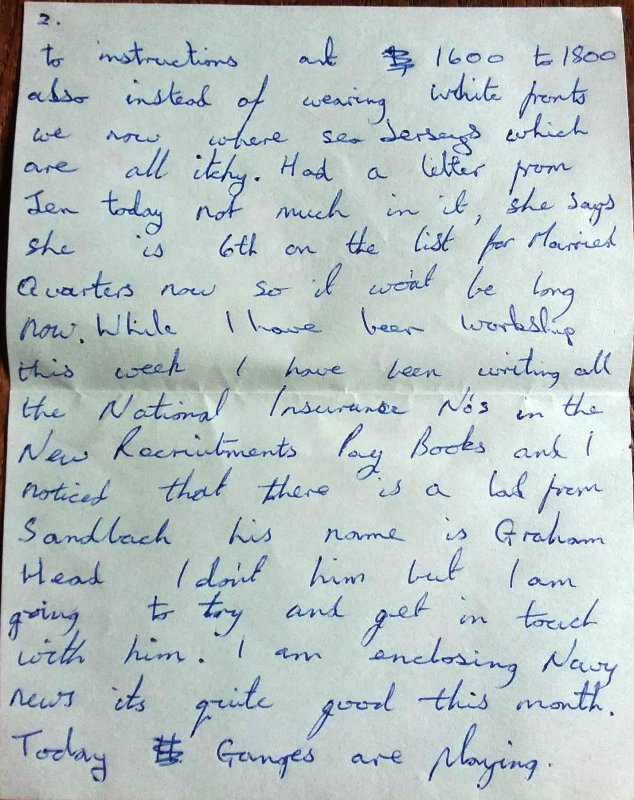 2.
to instructions and 1600 to 1800
also instead of wearing white fronts
we now where sea Jerseys which
are all itchy. Had a letter from
Jen today not much in it, she says
she is 6th on the list for Married
Quarters now so it won't be long
now. While I have been workship
this week I have been writing all
the National Insurance No's in the
New Recruitments Pay Books and I
noticed that there is a lad from
Sandbach his name is Graham
Head I don't him but I am
going to try and get in touch
with him. I am enclosing Navy
news its quite good this month.
Today Ganges are playing.